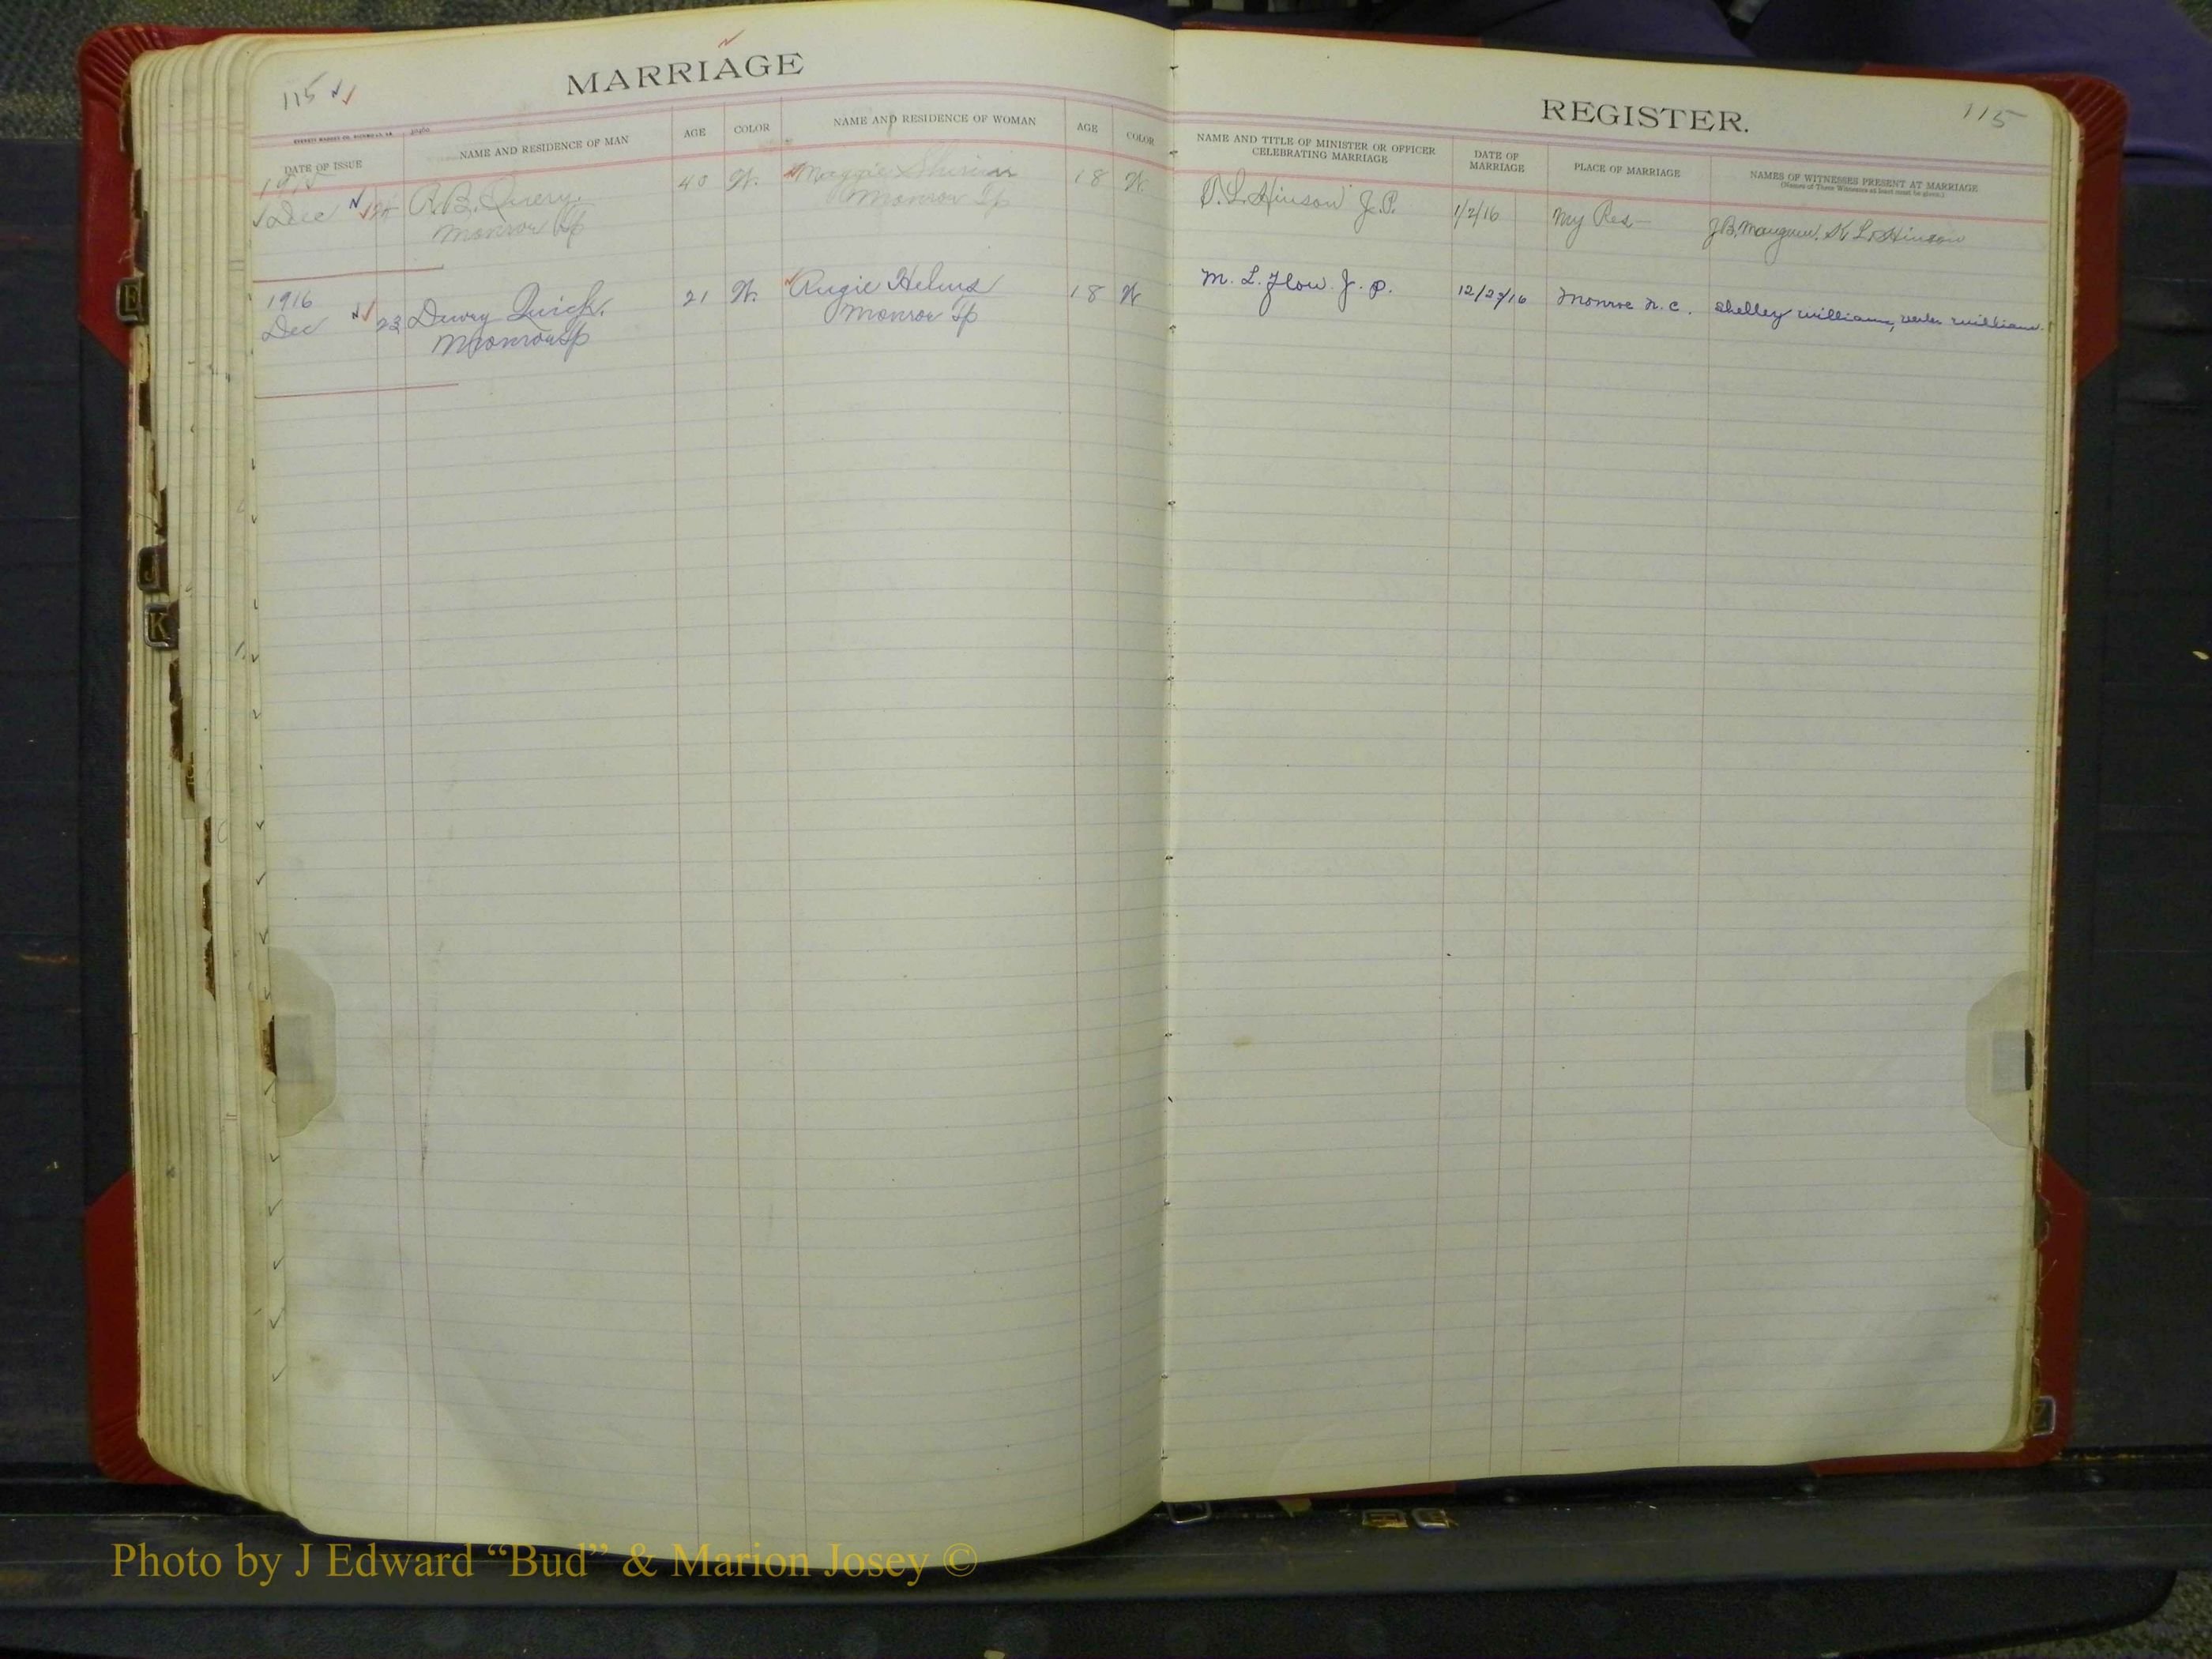 115
MARRIAGE
DATE OF ISSUE
NAME AND RESIDENCE OF MAN
AGE
COLOR
NAME AND RESIDENCE OF WOMAN
AGE
COLOR
1915
Dec
R.B. Query.
Monroe Tp
40
W.
Maggie
Monroe Tp
18
W.
1916
Dec
23
Dewey Quick.
Monroe Tp
21
W.
Angie Helms
Monroe Tp
18
W
REGISTER.
115
NAME AND TITLE OF MINISTER OR OFFICER
CELEBRATING MARRIAGE
DATE OF
MARRIAGE
PLACE OF MARRIAGE
NAMES OF WITNESSES PRESENT AT MARRIAGE
(Names of Three Witnesses at least must be given.)
L. Hinson J.P.
1/2/16
My Res
J.B. Mangum, L. Hinson
M. L. Flow J. P.
12/23/16
Monroe N. C.
Shelley Williams, Williams
E
J
K
Photo by J Edward “Bud” & Marion Josey ©